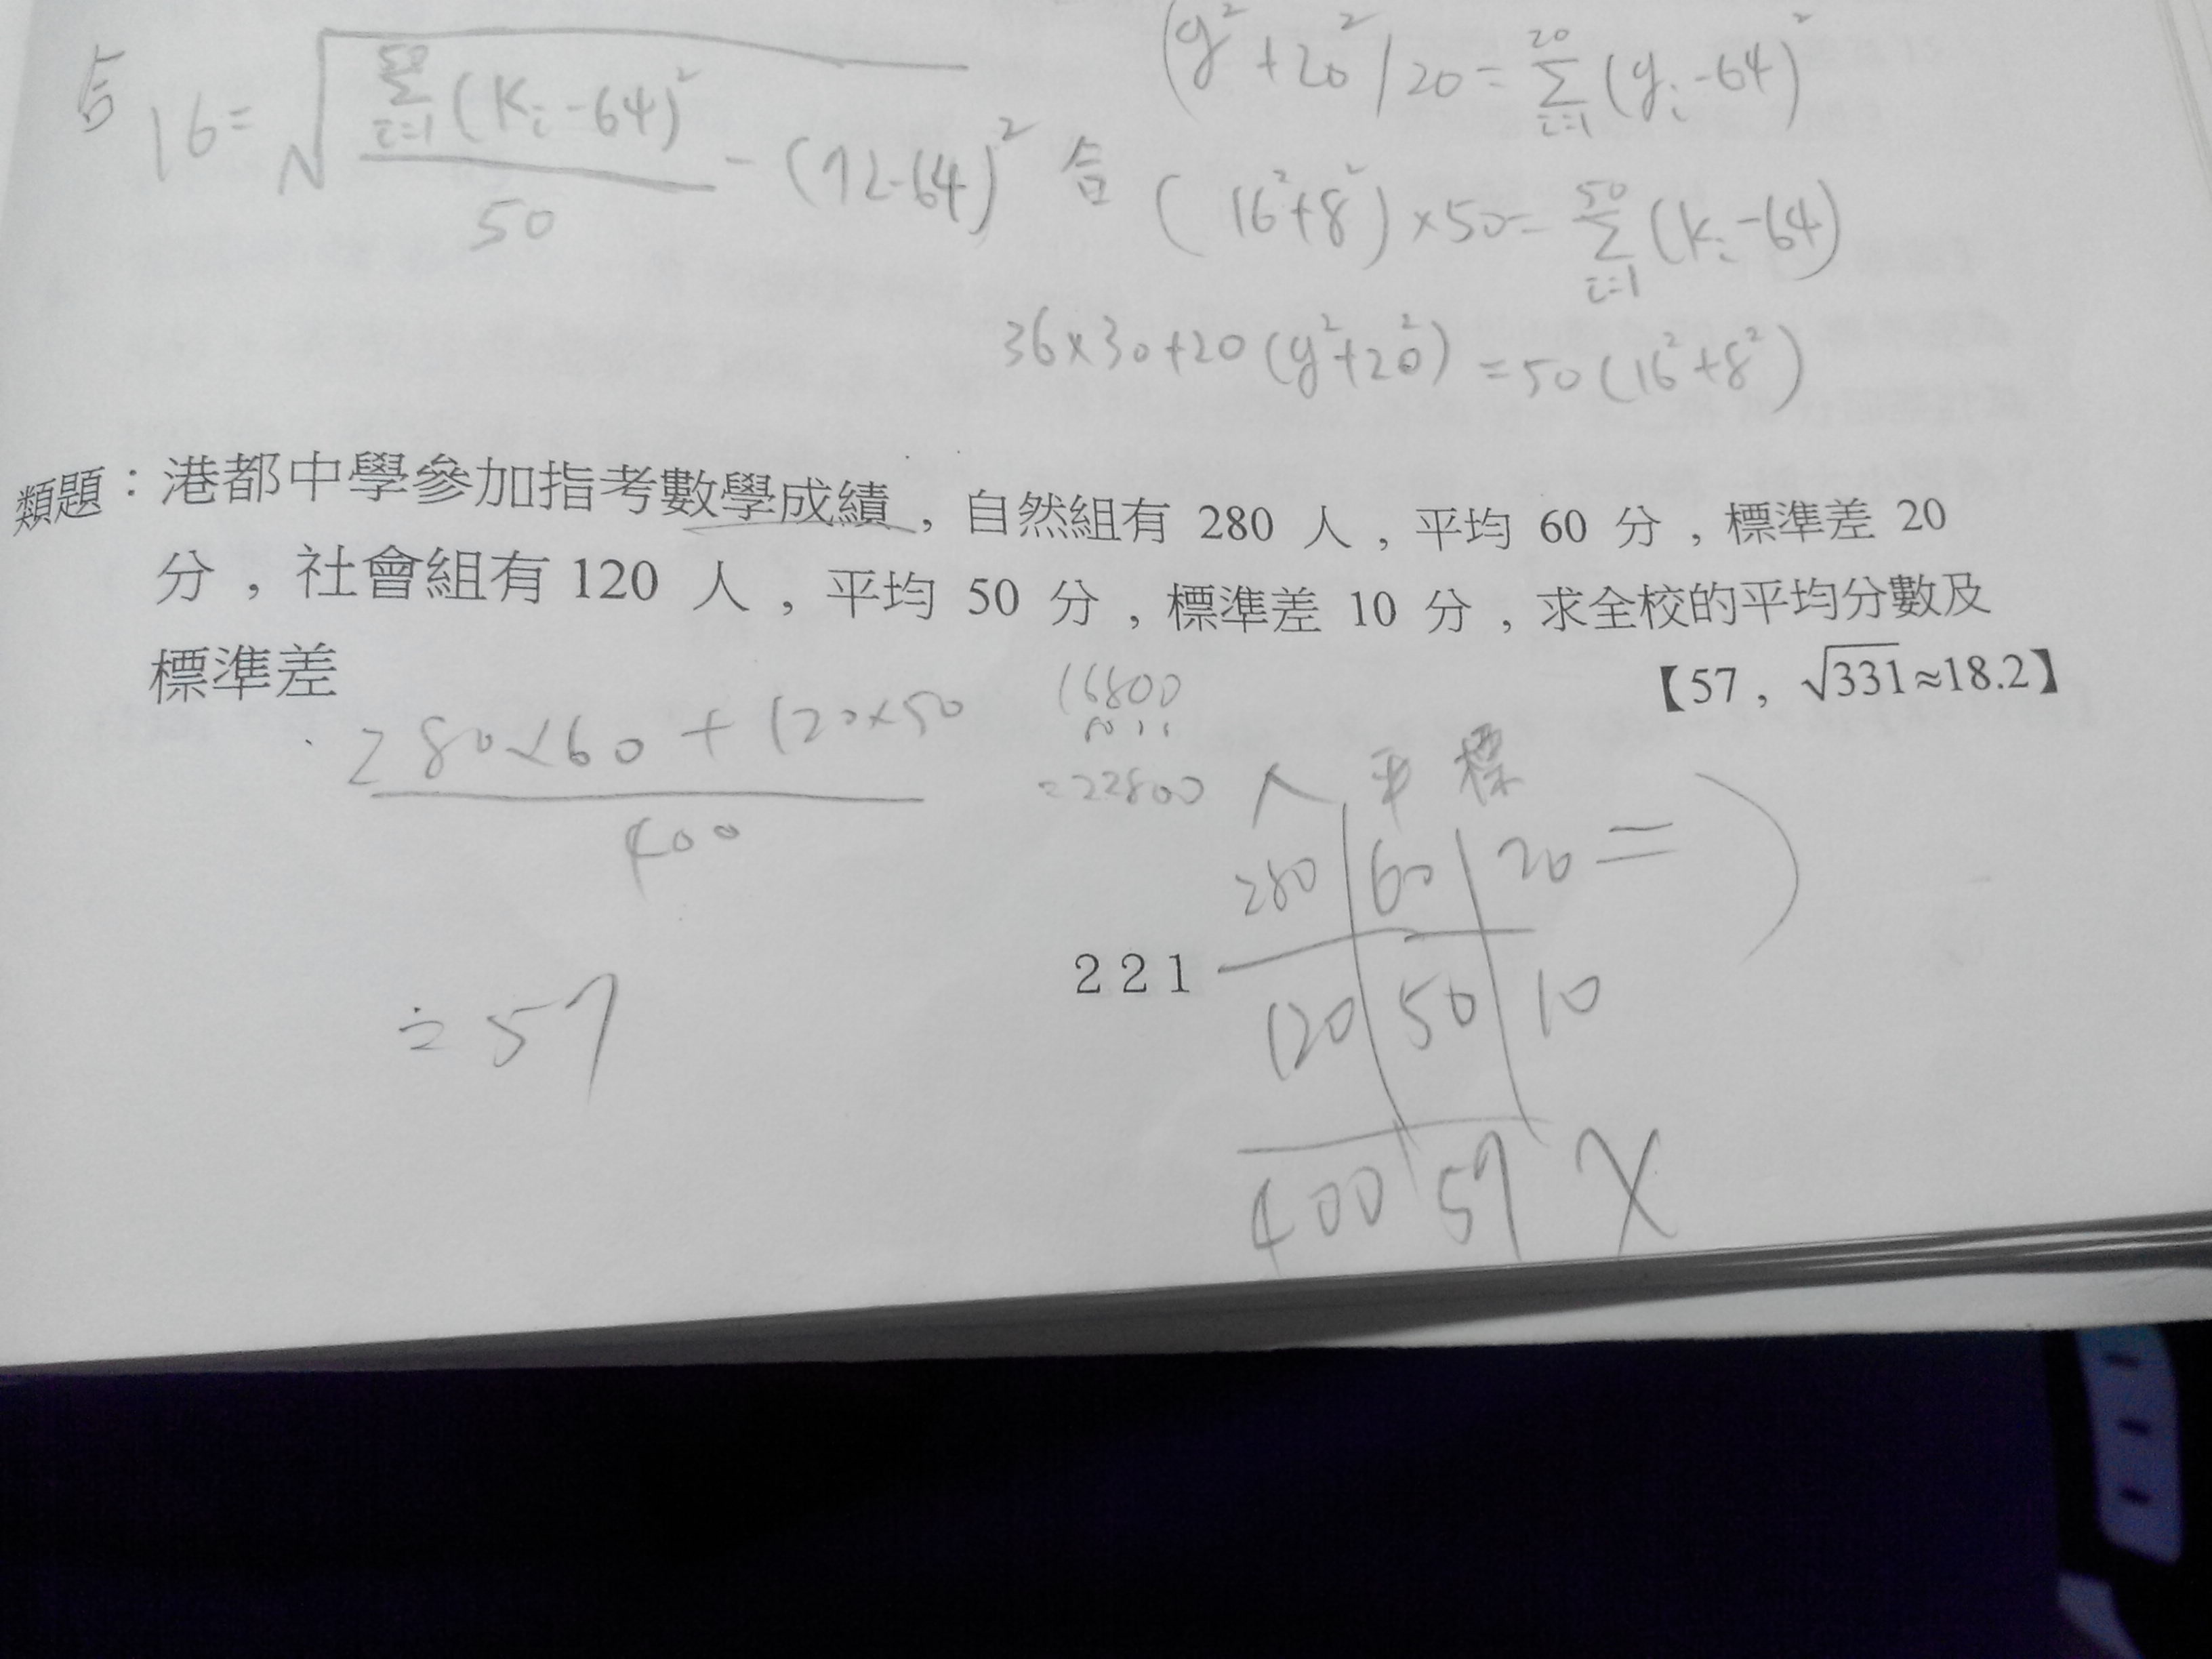 16 = √ Σ(i=1, 50) (Ki - 64)² / 50 - (72-64)²
(y² + 20²)20 = Σ(i=1, 20) (yi - 64)²
合 (16²+8²)×50 = Σ(i=1, 50) (Ki - 64)
36×30+20(y²+20²) = 50(16²+8²)
類題：港都中學參加指考數學成績，自然組有 280 人，平均 60 分，標準差 20
分，社會組有 120 人，平均 50 分，標準差 10 分，求全校的平均分數及
標準差
【57， √331≈18.2】
280×60 + 120×50
400
16800
=22800
人 平 標
280 60 20 =
120 50 10
400 57 X
221
≐ 57